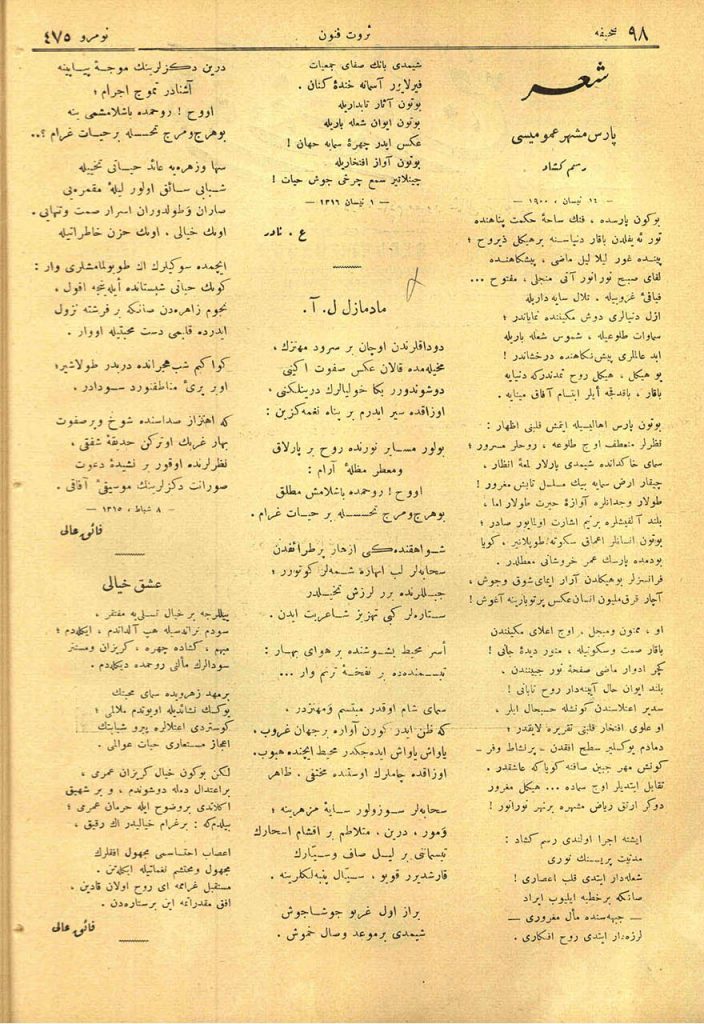 ٩٨ صحیفه
ثروت فنون
نومرو ٤٧٥
شعر
پارس مشهر عمومیسی
رسم کشاد
— ١٤ نیسان ، ١٩٠٠ —
بوكون پارسده ، فنك ساحۀ حكمت پناهنده
تور ئه یفلدن باقار دنیاسنه برهیكل ذیروح ؛
پیننده غور لیلا لیل ماضی ، پیشكاهنده
لقای صبح نورانور آتی منجلی ، مفتوح ...
ازل دنیالری دوش مكیننده نمایاندر ؛
سماوات طلوعیله ، شموس شعله باریله
ابد عالملری پیش نكاهنده درخشاندر !
بو هیكل ، هیكل روح تمدندركه دنیایه
باقار ، باقدقجه ایلر ابتسام آفاق مینایه .
بوتون پارس اهالیسیله ایتمش قلبنی اظهار :
نظرلر منعطف اوج طلوعه ، روحلر مسرور ؛
سمای خاكدانده شیمدی پارلار لمعۀ انظار ،
چیقار ارض سمایه بیك مسلسل تابش مغرور !
طولار وجدانلره آوازۀ حیرت طولار اما ،
بلند آلقیشلره برنیم اشارت اولمایور صادر ؛
بوتون انسانلر اعماق سكوته طوپلانیر ، كویا
بودمده پارسك عمر خروشانی معطلدر .
فرانسزلر بوهیكلدن آرار ایمای شوق وجوش ،
آچار قرق ملیون انسان عكس پرتوبارینه آغوش !
او ، ممنون ومبجل ، اوج اعلای مكیفندن
باقار صمت وسكونیله ، منور دیدۀ جانی !
كچر ادوار ماضی صفحۀ نور جبینندن .
بلند ایوان حال آیینه دار روح تابانی !
او علوی افتخار قلبنی تقریره لایقدر ؛
دمادم یوكسلیر سطح افقدن ، پرنشاط وفر -
كونش مهر جبین صافنه كویا كه عاشقدر .
تقابل ایتدیلر اوج سماده ... هیكل مغرور
دوكر ارتق ریاض مشهره برنهر نورانور !
ایشته اجرا اولندی رسم كشاد :
مدنیت پریسنك نوری
شعله دار ایتدی قلب اعصاری !
صانكه برخطبه ایلیوب ایراد
— جبهه سنده مآل مغروری —
لرزه دار ایتدی روح افكاری .
شیمدی بانك صفای جمعیات
فیرلایور آسمانه خندۀ كنان .
بوتون آثار تابداریله
بوتون ایوان شعله باریله
عكس ایدر چهرۀ سمایه جهان !
بوتون آواز افتخاریله
چینلاتیر سمع چرخی جوش حیات !
— ١ نیسان ١٣١٦ —
ع . نادر
مادمازل ل . آ .
دوداقلرندن اوچان بر سرود مهتزك ،
مخیله مده قالان عكس صفوت اكینی
دوشوندورر بكا خولیالرك درینلكنی .
اوزاقده سیر ایدرم بر پناه نغمه كزین :
بولور مسایر نورنده روح بر پارلاق
ومعطر مظلۀ آرام :
اووح ! روحمده باشلامش مطلق
بوهرج ومرج تحسسله بر حیات غرام .
شواهقنده كی ازهار پرطرائفدن
سحابه لر لب انهاره شمه لر كوتورر ؛
جبللرنده برر لرزش تخیلدر
ستاره لر كبی تهزیز شاعریت ایدن .
أسر محیط بشوشنده بر هوای بهار :
تبسمنده بر نفخۀ ترنم وار ...
سمای شام اوقدر مبتسم ومهتزدر ،
كه ظن ایدر كورن آواره برجهان غروب .
یاواش یاواش ایده جكدر محیط ایچنده هبوب .
اوزاقده چاملرك اوستنده مختفی . ظاهر
سحابه لر سوزولور سایۀ مزهرینه ؛
ومور ، درین ، متلاطم بر اقشام اسحارك
تبسماتی بر لیل صاف وسیارك
قارشدیرر قویو ، سیال پنبه لكلرینه .
براز اول غریو جوشاجوش
شیمدی برموعد وصال خموش .
درین دكزلرینك موجۀ پیاپینه
آشنادر تموج اجرام ؛
اووح ! روحمده باشلامشمی ینه
بوهرج ومرج تحسسله برحیات غرام ؟..
سها وزهره یه عائد حیاتی تخییله
شبابی سائق اولور لیلۀ مقمره یی
صاران وطولدوران اسرار صمت وتنهایی .
اونك خیالی . اونك حزن خاطراتیله
ایچمده سوكیلرك اك طویولمامشلری وار :
نجوم زاهره دن صانكه بر فرشته نزول
ایدرده قلبمی دست محبتیله اووار .
كواكبم شب هجرانده دربدر طولاشیر ؛
كه اهتزاز صداسنده شوخ وپرصفوت
بهار غربك اوتركن حدیقۀ شفقی ،
نظرلرنده اوقور بر نشیدۀ دعوت
صورانت دكزلرینك موسیقی آفاقی .
— ٨ شباط ، ١٣١٥ —
فائق عالی
عشق خیالی
ییللرجه بر خیال تسلی یه مفتقر ،
سودم نراندسیله هپ آلداندم ، ایكله دم ؛
مبهم ، كشاده چهره ، كریزان ومستتر
سودالرك مآلنی روحمده دیكله دم .
برمهد زهرویده سمای محبتك
یوكسك نشائدیله اویوتدم ملالمی ؛
كوستردی اعتلالره پیرو شبابتك
اعجاز مستعاری حیات عوالمی .
لكن بوكون خیال كریزان عمرمی ،
براعتدال دمله دوشوندم ، و بر شهیق
اكلاتدی بروضوح ایله حرمان عمرمی ؛
بیلدم كه : برغرام خیالیدر اك رقیق ،
اعصاب احتساسمی مجهول افقلرك
مجهول ومحتشم نغماتیله ایكله تن .
مستقبل غرامه ای روح اولان قادین .
افق مقدراتمه این برستاره دن .
فائق عالی